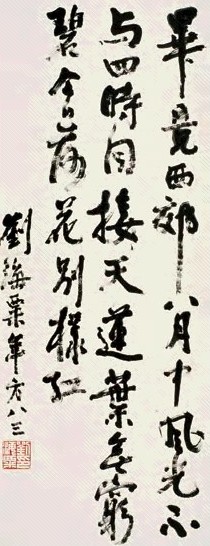 畢竟西郊八月中風光不
与四時同接天蓮葉無窮
碧今日荷花別樣紅
劉海粟年方八三